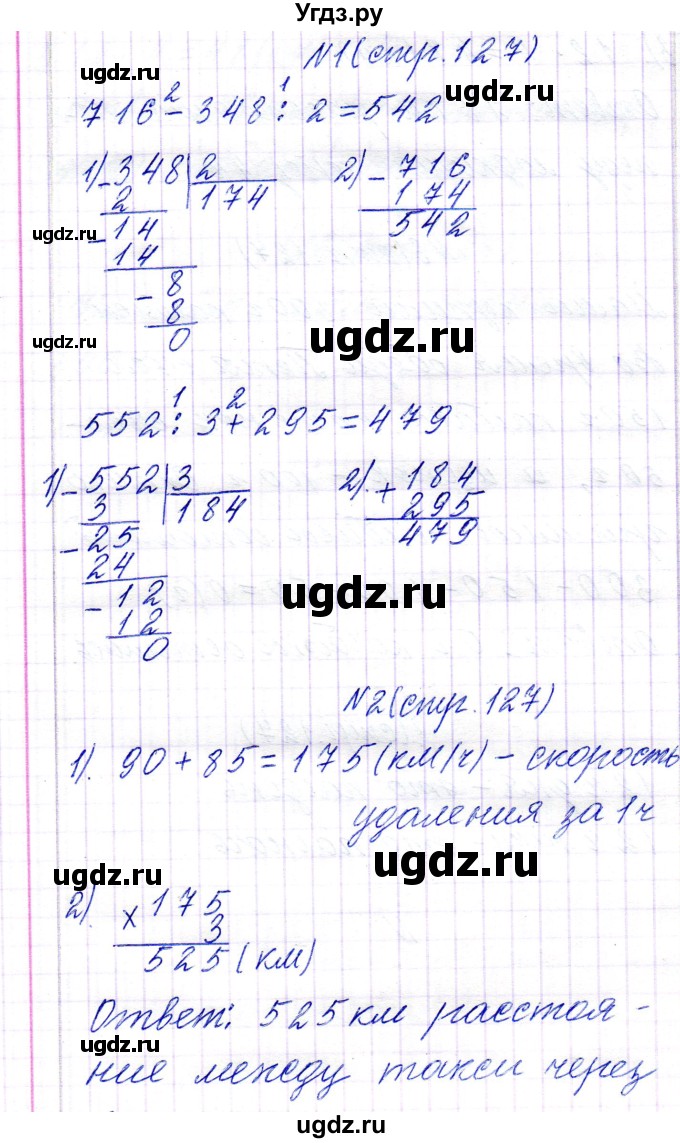 Угдз.ру
N1(стр.127)
716 - 348 : 2 = 542
2 1
1) - 348 | 2
2 174
- 14
14
- 8
8
0
2) - 716
174
542
552 : 3 + 295 = 479
1 2
1) - 552 | 3
3 184
- 25
24
- 12
12
0
2). + 184
295
479
N2(стр.127)
1). 90 + 85 = 175 (км/ч) - скорость
удаления за 1ч
2). × 175
3
525 (км)
Ответ: 525 км расстоя -
ние между такси через
ugdz.ru
ugdz.ru
ugdz.ru
ugdz.ru
ugdz.ru
ugdz.ru
ugdz.ru
ugdz.ru
ugdz.ru
ugdz.ru
ugdz.ru